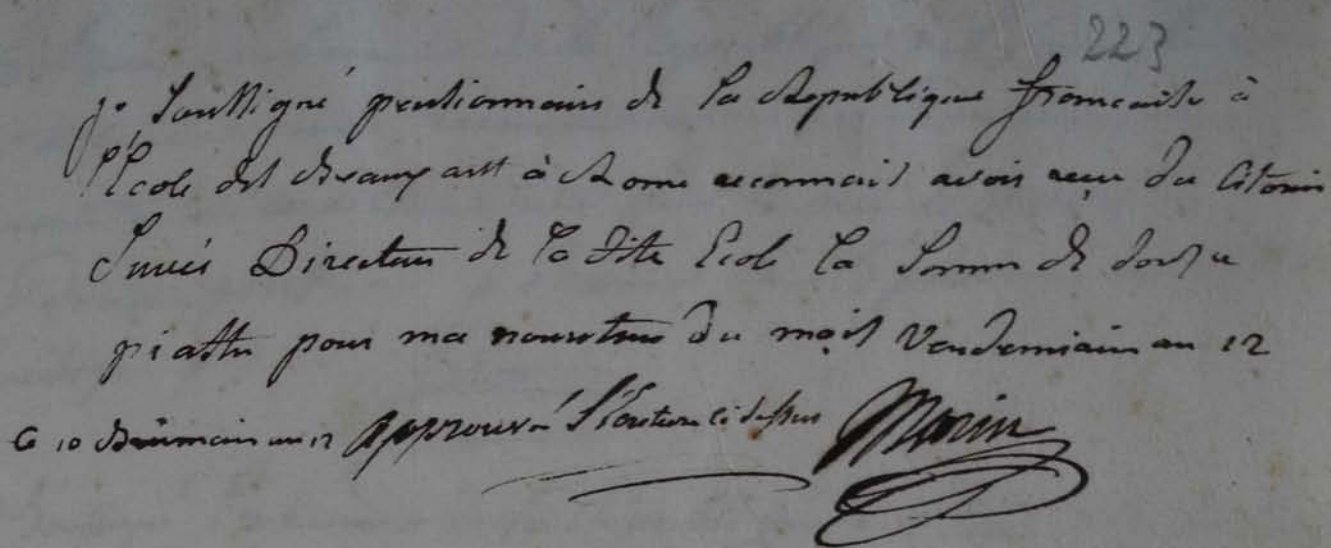 223
je Soussigné pensionnaire de la Republique francaise à
l'Ecole des Beaux arts à Rome reconnais avoir reçu du Citoien
Suvée Directeur de la dite Ecole la Somme de douze
piastre pour ma nourriture du mois Vendemiaire an 12
Ce 10 Brumaire an 12 approuvé l'Ecriture ci dessus Marin